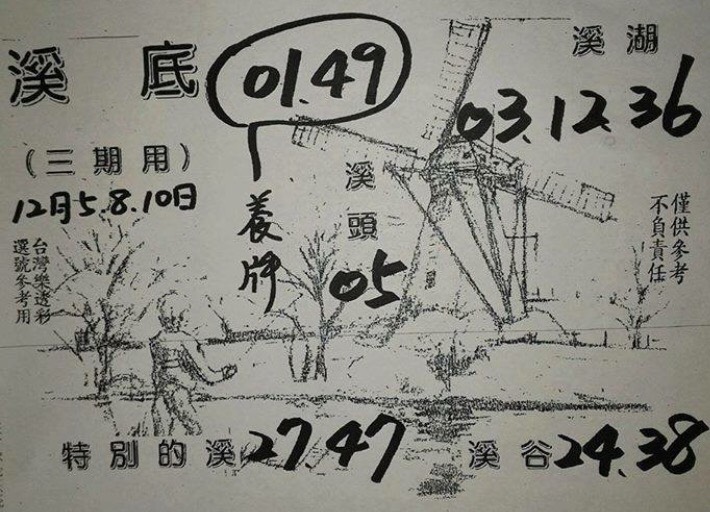 溪底
01.49
溪湖
03.12.36
(三期用)
12月5.8.10日
養牌
溪頭
05
台灣樂透彩
選號參考用
僅供參考
不負責任
特別的溪 27.47
溪谷 24.38